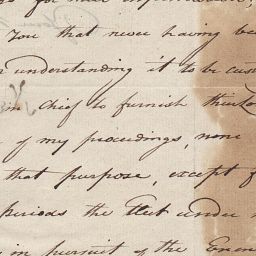 You that never having be
understanding it to be cus
in Chief to furnish their Lo
of my proceedings, none
that purpose, except f
periods the Fleet under
in pursuit of the Enem